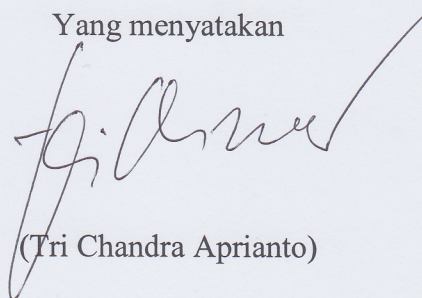 Yang menyatakan
(Tri Chandra Aprianto)